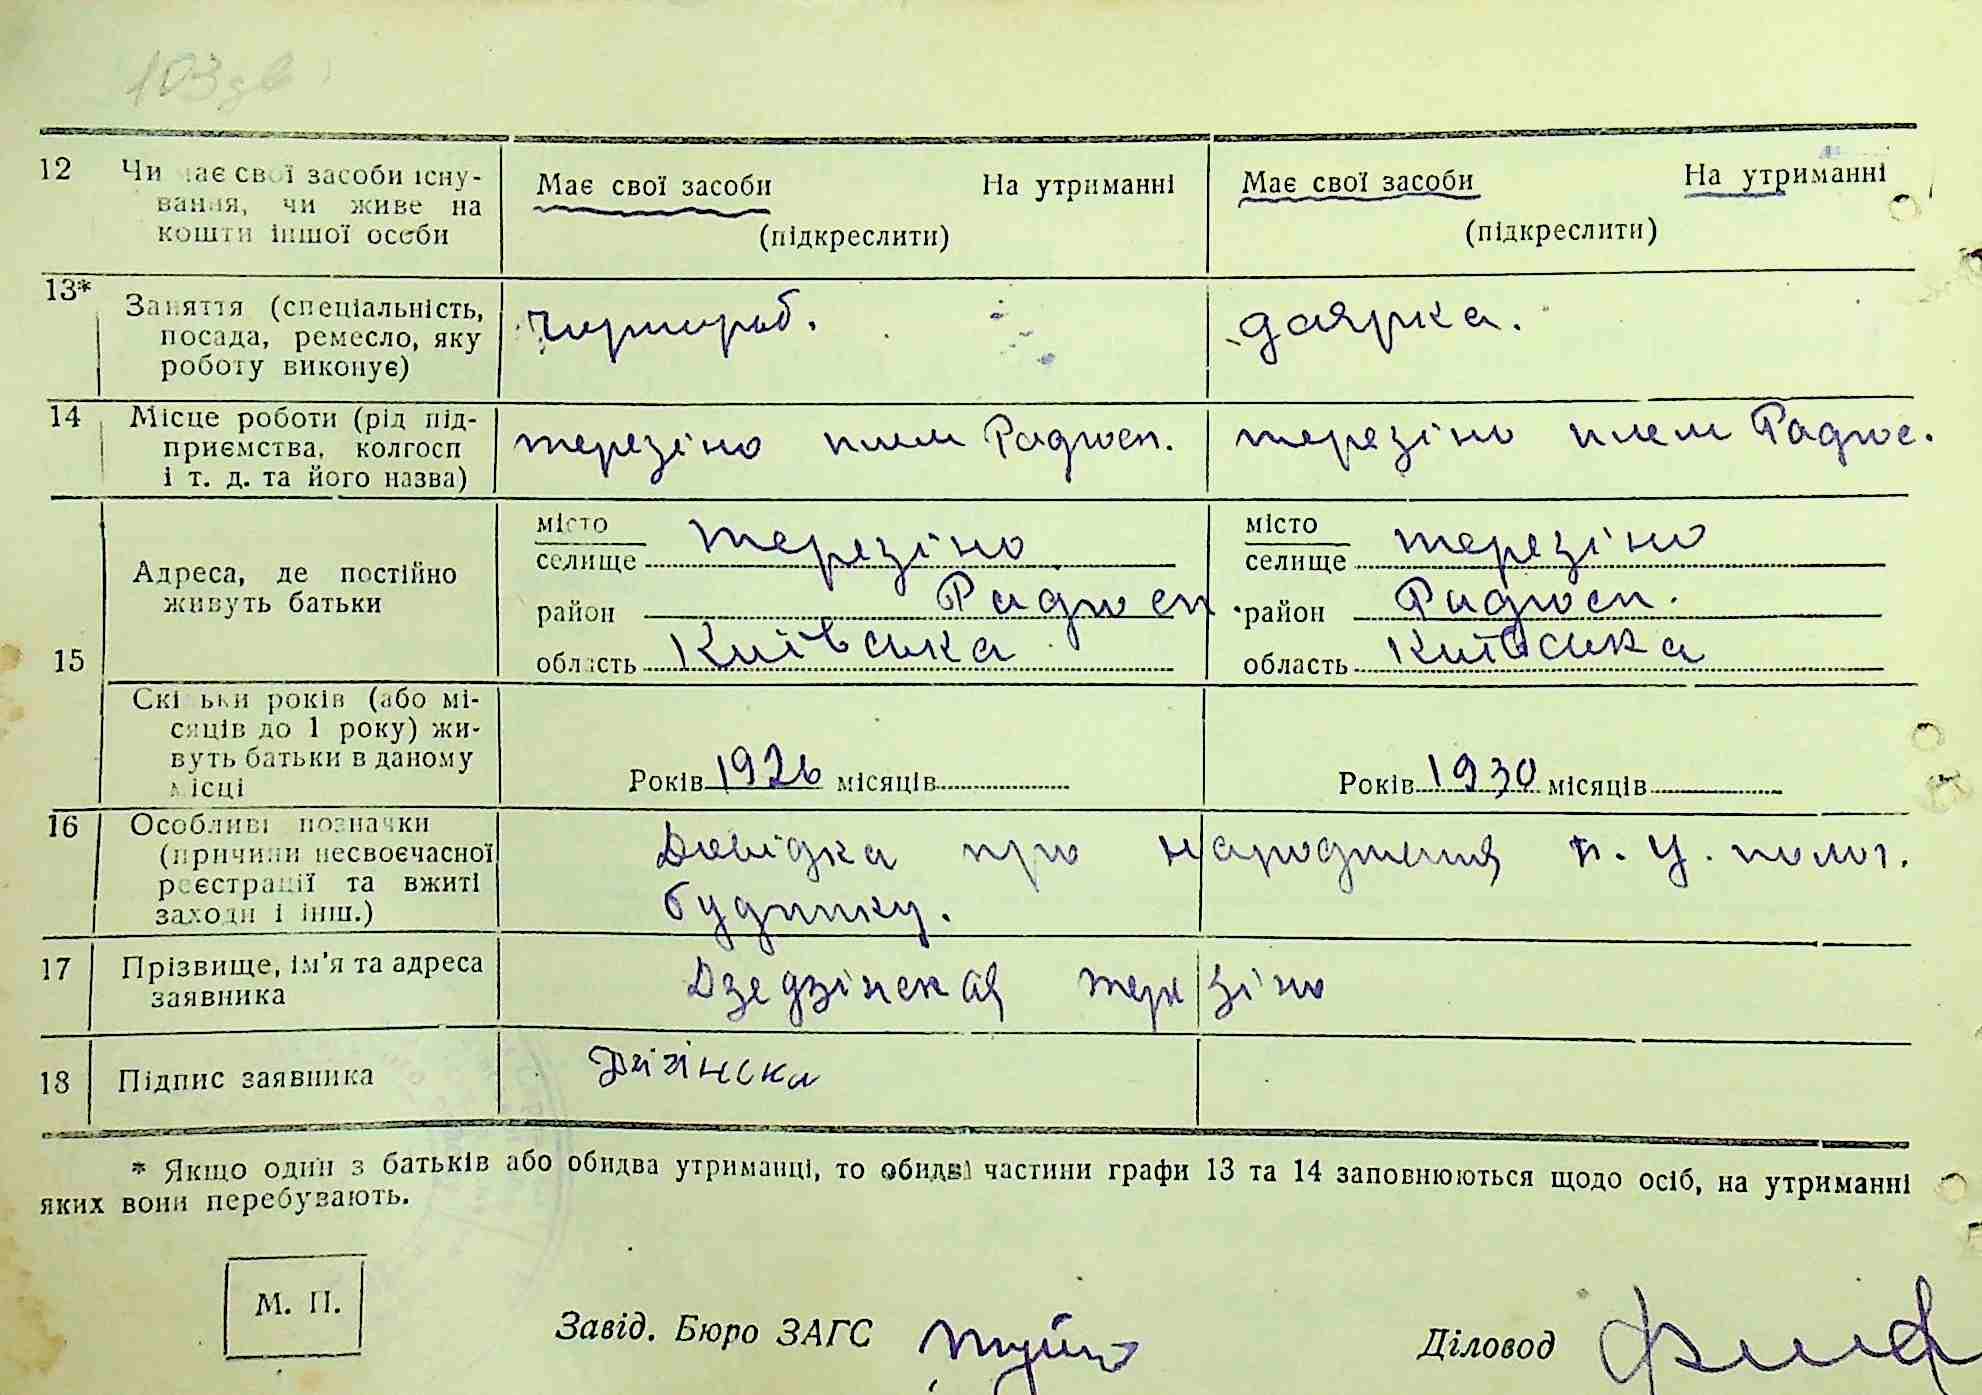 103
12 Чи має свої засоби існу-
вання, чи живе на
кошти іншої особи
Має свої засоби На утриманні
(підкреслити)
Має свої засоби На утриманні
(підкреслити)
13* Заняття (спеціальність,
посада, ремесло, яку
роботу виконує)
чорнораб.
доярка.
14 Місце роботи (рід під-
приємства, колгосп
і т. д. та його назва)
терезіно плем Радгосп.
терезіно плем Радгос.
15 Адреса, де постійно
живуть батьки
місто
селище терезіно
район Радгосп
область Київська
місто
селище терезіно
район Радгосп.
область Київська
Скільки років (або мі-
сяців до 1 року) жи-
вуть батьки в даному
місці
Років 1926 місяців
Років 1930 місяців
16 Особливі позначки
(причини несвоєчасної
реєстрації та вжиті
заходи і інш.)
Довідка про народження Б. Ц. полог.
будинку.
17 Прізвище, ім'я та адреса
заявника
Дзедзінская терезіно
18 Підпис заявника
* Якщо один з батьків або обидва утриманці, то обидві частини графи 13 та 14 заповнюються щодо осіб, на утриманні
яких вони перебувають.
М. П.
Завід. Бюро ЗАГС
Діловод